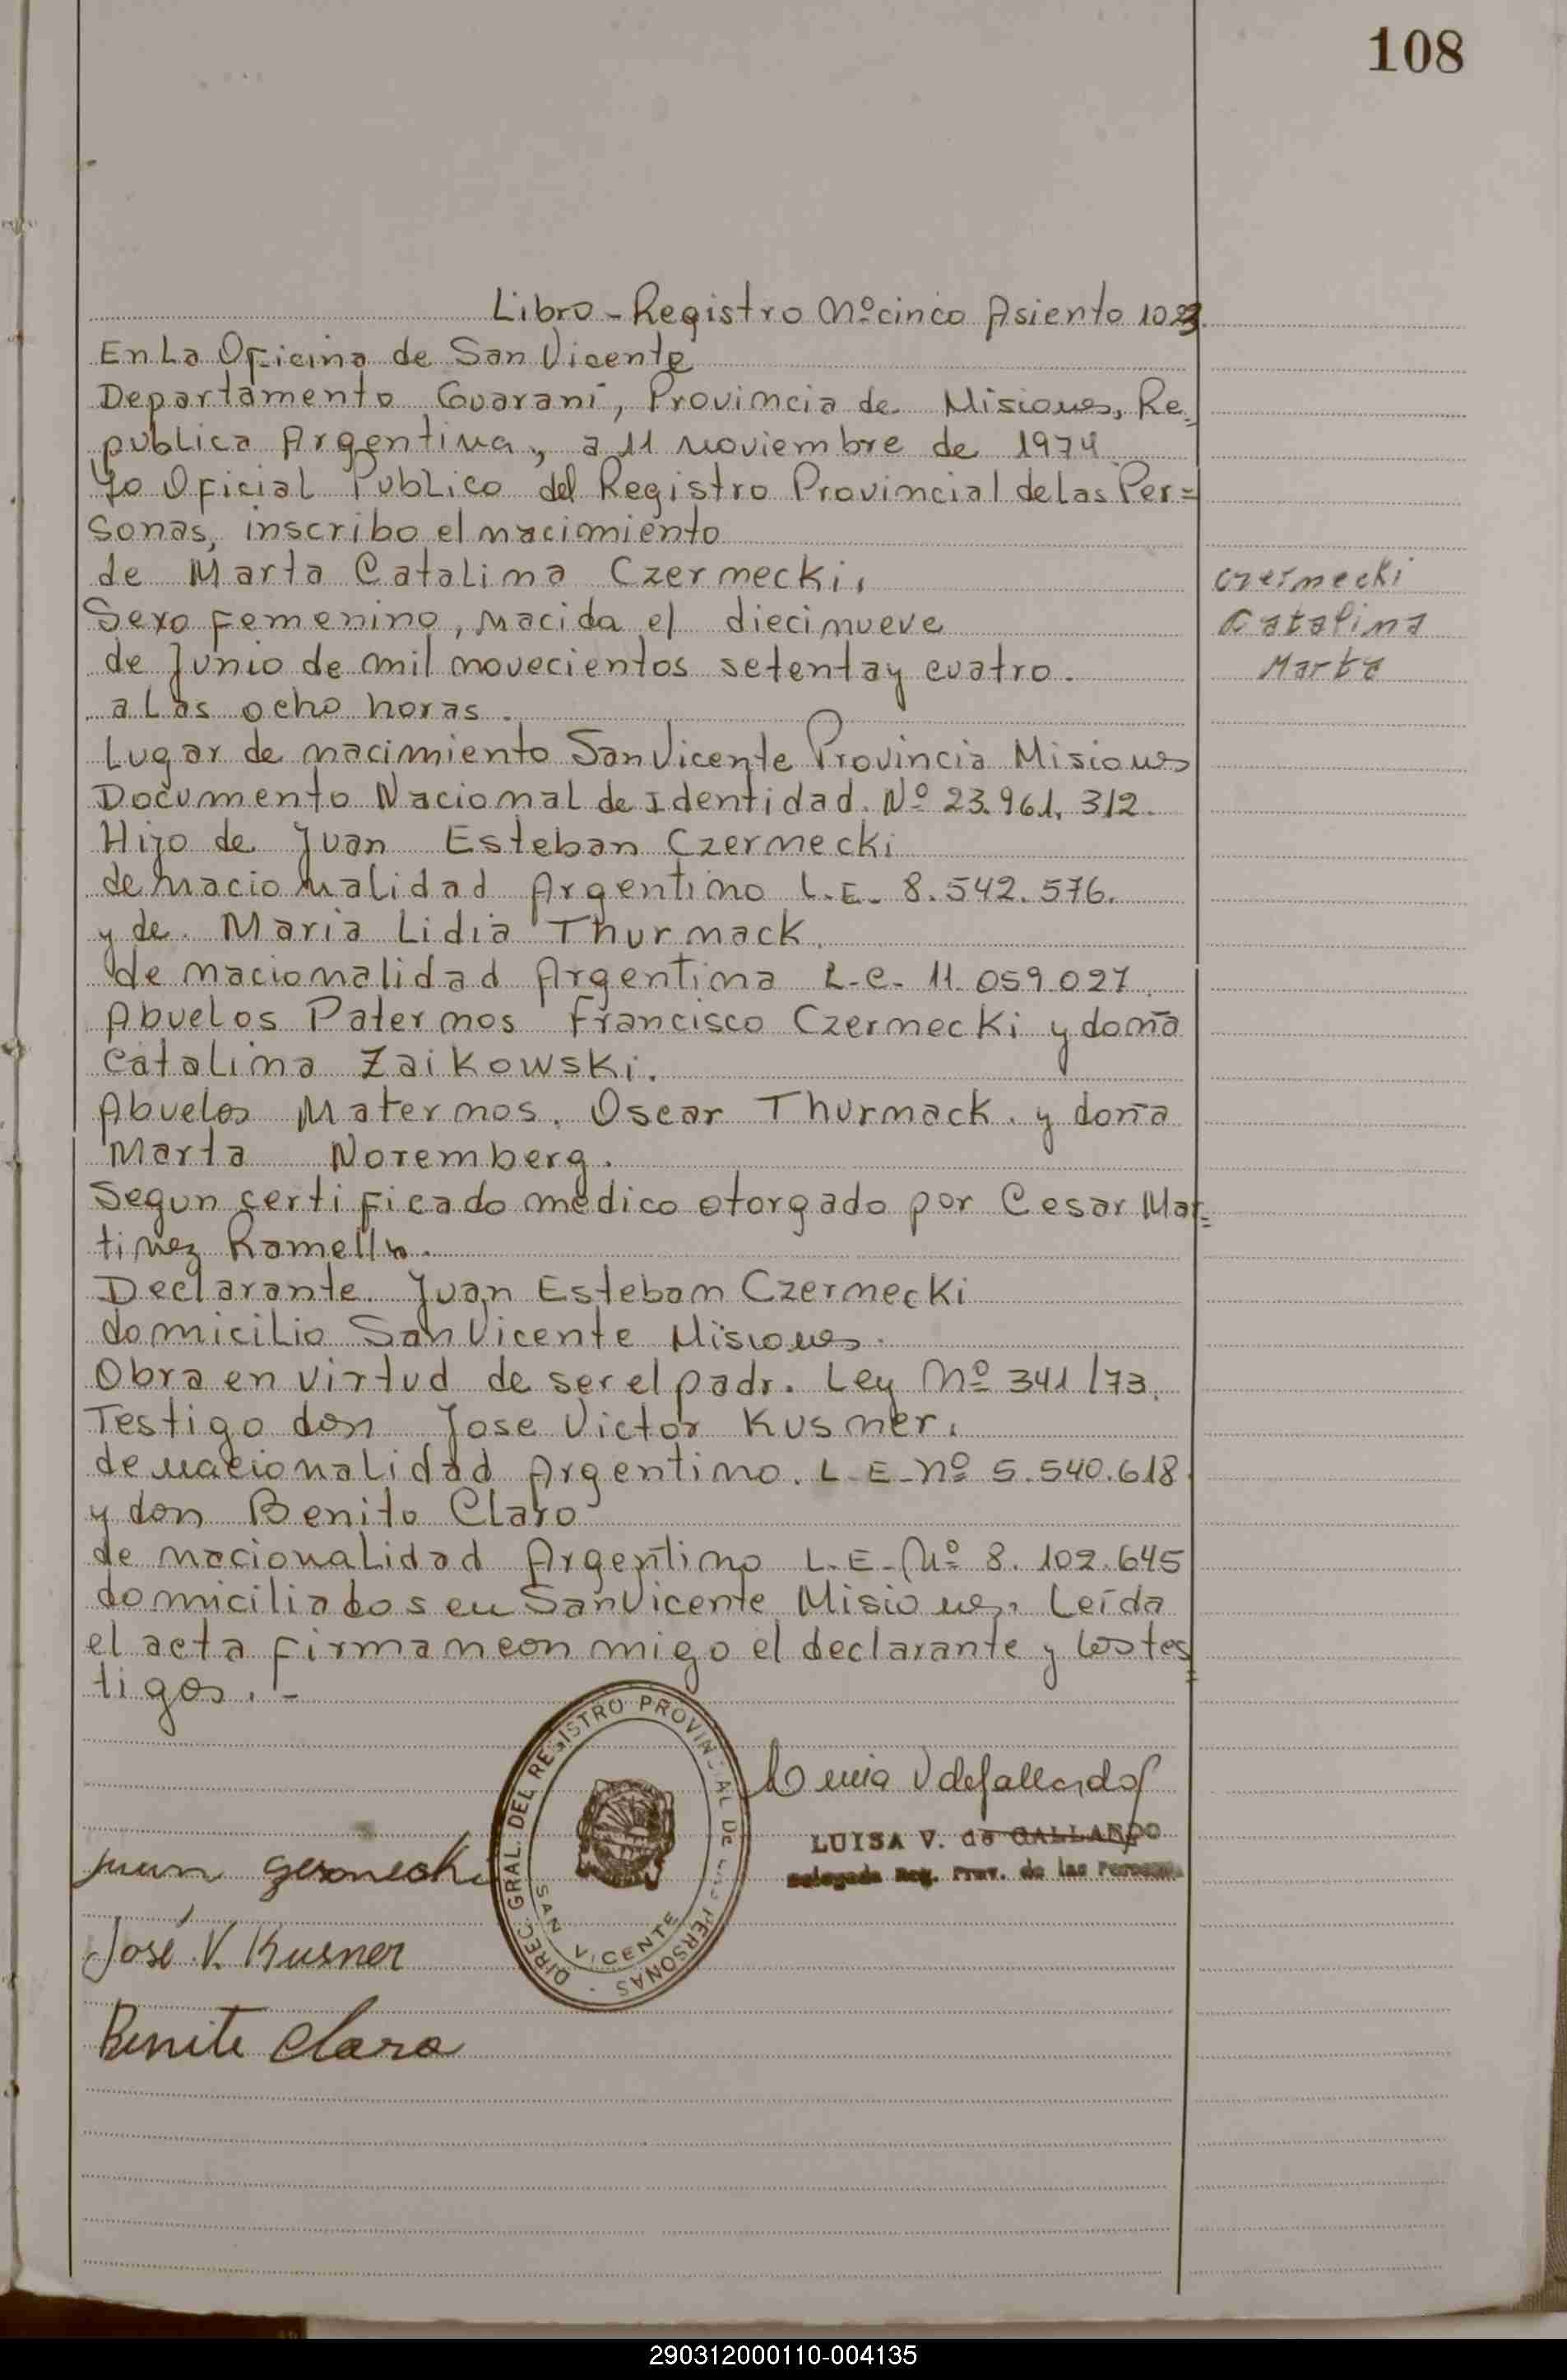 108
Libro - Registro Nº cinco Asiento 1023.
En La Oficina de San Vicente
Departamento Guaraní, Provincia de Misiones, Re=
publica Argentina, a 11 noviembre de 1974
Yo Oficial Publico del Registro Provincial de Las Per=
sonas, inscribo el nacimiento
de Marta Catalina Czernecki,
Sexo femenino, nacida el diecinueve
de Junio de mil novecientos setenta y cuatro.
a Las ocho horas.
Lugar de nacimiento San Vicente Provincia Misiones
Documento Nacional de Identidad. Nº 23.961.312.
Hijo de Juan Esteban Czernecki
de nacionalidad Argentino L.E. 8.542.576.
y de. Maria Lidia Thurmack.
de nacionalidad Argentina L.C. 11.059.027.
Abuelos Paternos Francisco Czernecki y doña
Catalina Zaikowski.
Abuelos Maternos. Oscar Thurmack. y doña
Marta Noremberg.
Segun certificado medico otorgado por Cesar Mar=
tinez Ramella.
Declarante. Juan Esteban Czernecki
domicilio San Vicente Misiones.
Obra en virtud de ser el padr. Ley Nº 341/73.
Testigo don Jose Victor Kusner.
de nacionalidad Argentino. L.E. nº 5.540.618.
y don Benito Claro
de nacionalidad Argentino L.E. Nº 8.102.645
domiciliados en San Vicente Misiones. Leída
el acta firman con migo el declarante y los tes=
tigos. -
Czernecki
Catalina
Marta
DIREC. GRAL. DEL REGISTRO PROVINCIAL DE LAS PERSONAS
SAN VICENTE
Luisa V de Gallardo
LUISA V. de GALLARDO
Delegada Reg. Prov. de las Personas
Juan Czernecki
José V. Kusner
Benite Claro
290312000110-004135